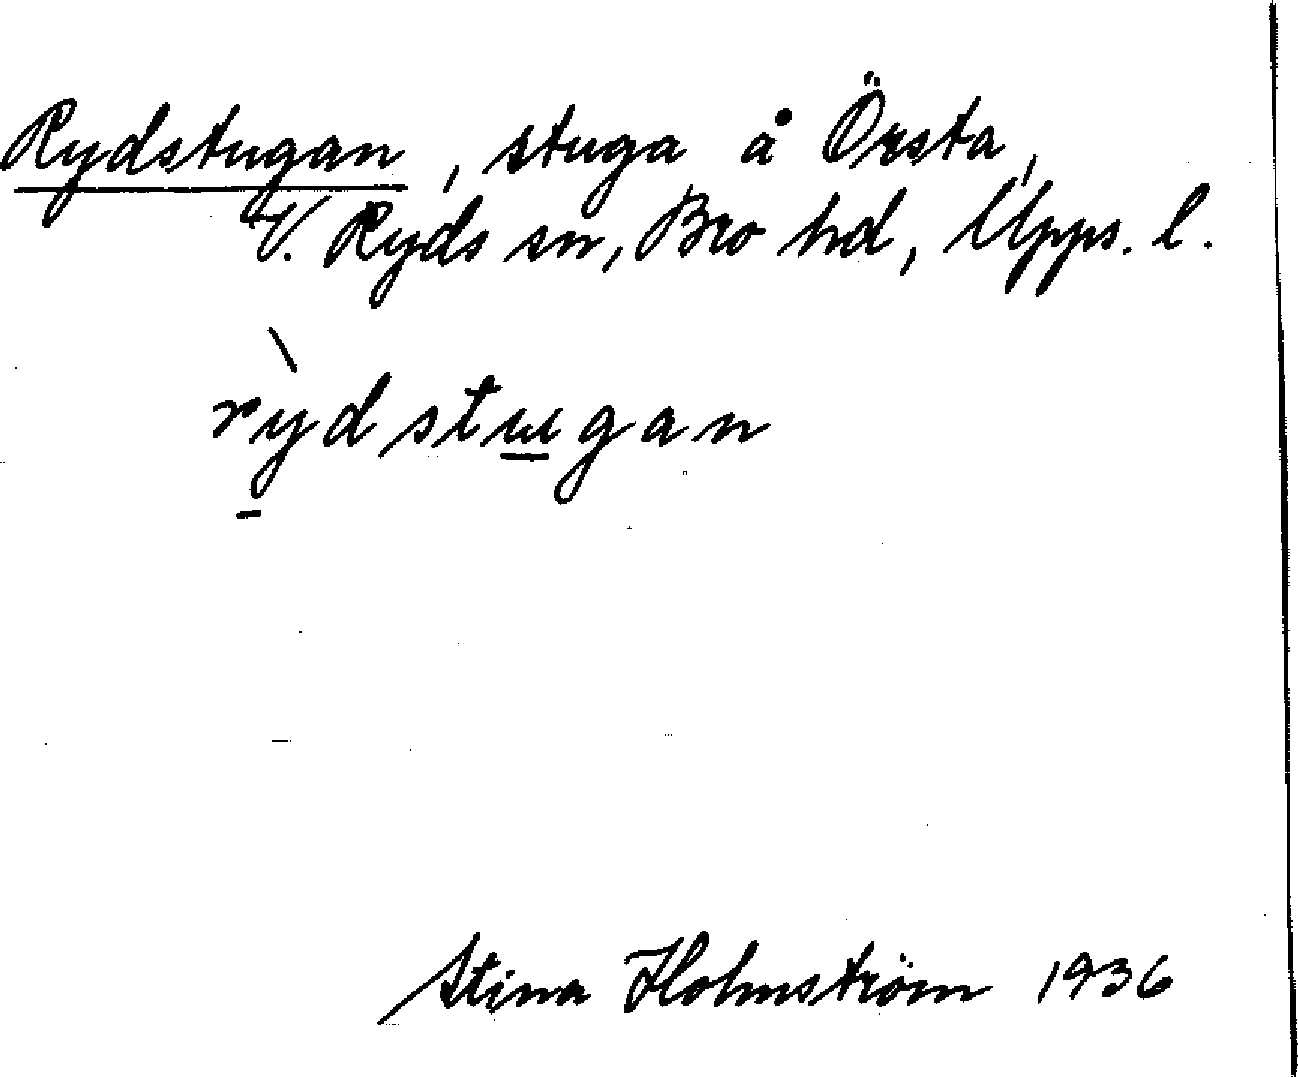 Rydstugan, stuga å Örsta,
V. Ryds sn, Bro hd, Upps. l.
rỳdstugan
Stina Holmström 1936